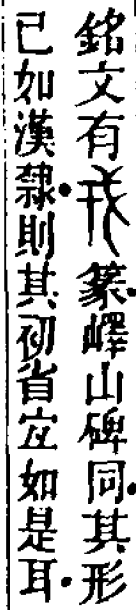 銘文有篆。嶧山碑同。其形
已如漢隸。則其初省宜如是耳。